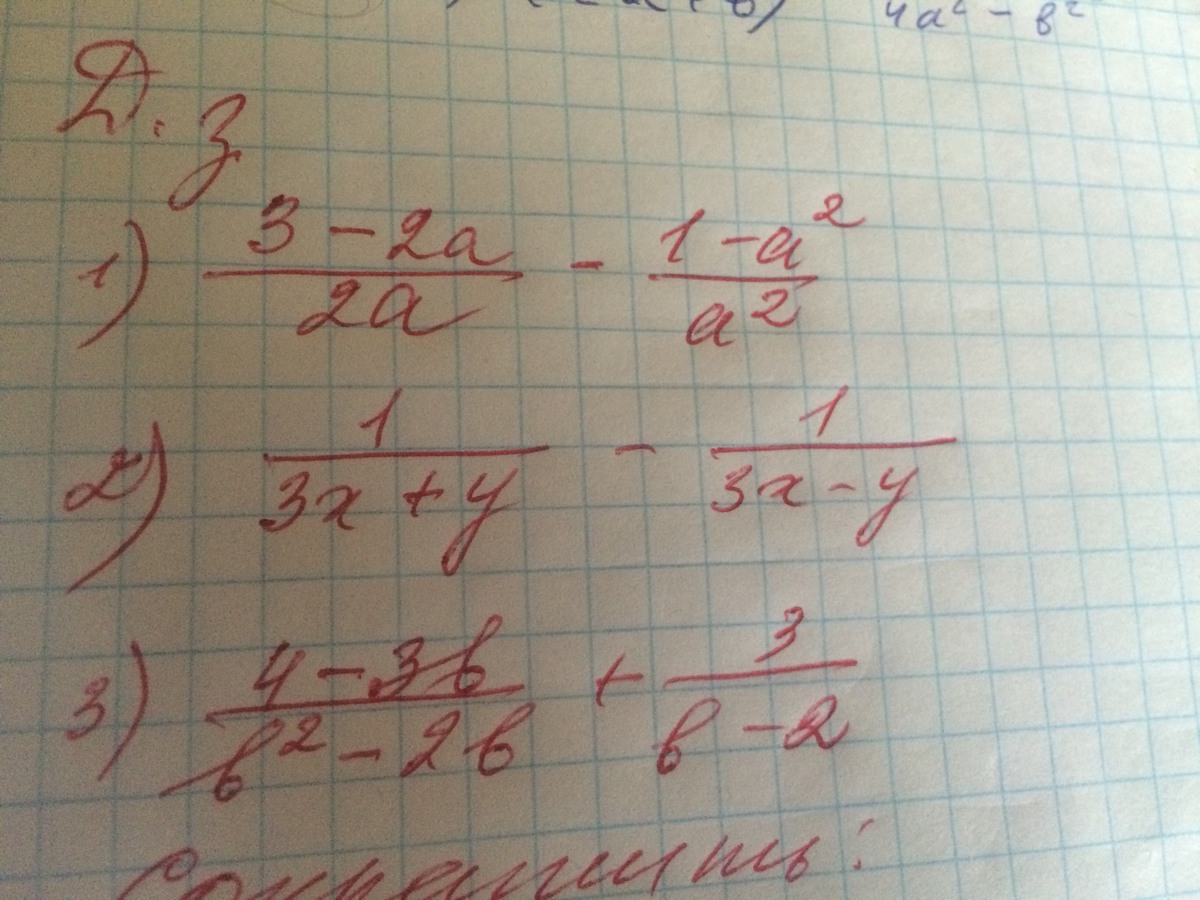 4a² - b²
Д. з
1) (3 - 2a)/(2a) - (1 - a²)/(a²)
2) 1/(3x + y) - 1/(3x - y)
3) (4 - 3b)/(b² - 2b) + 3/(b - 2)
Сократить: